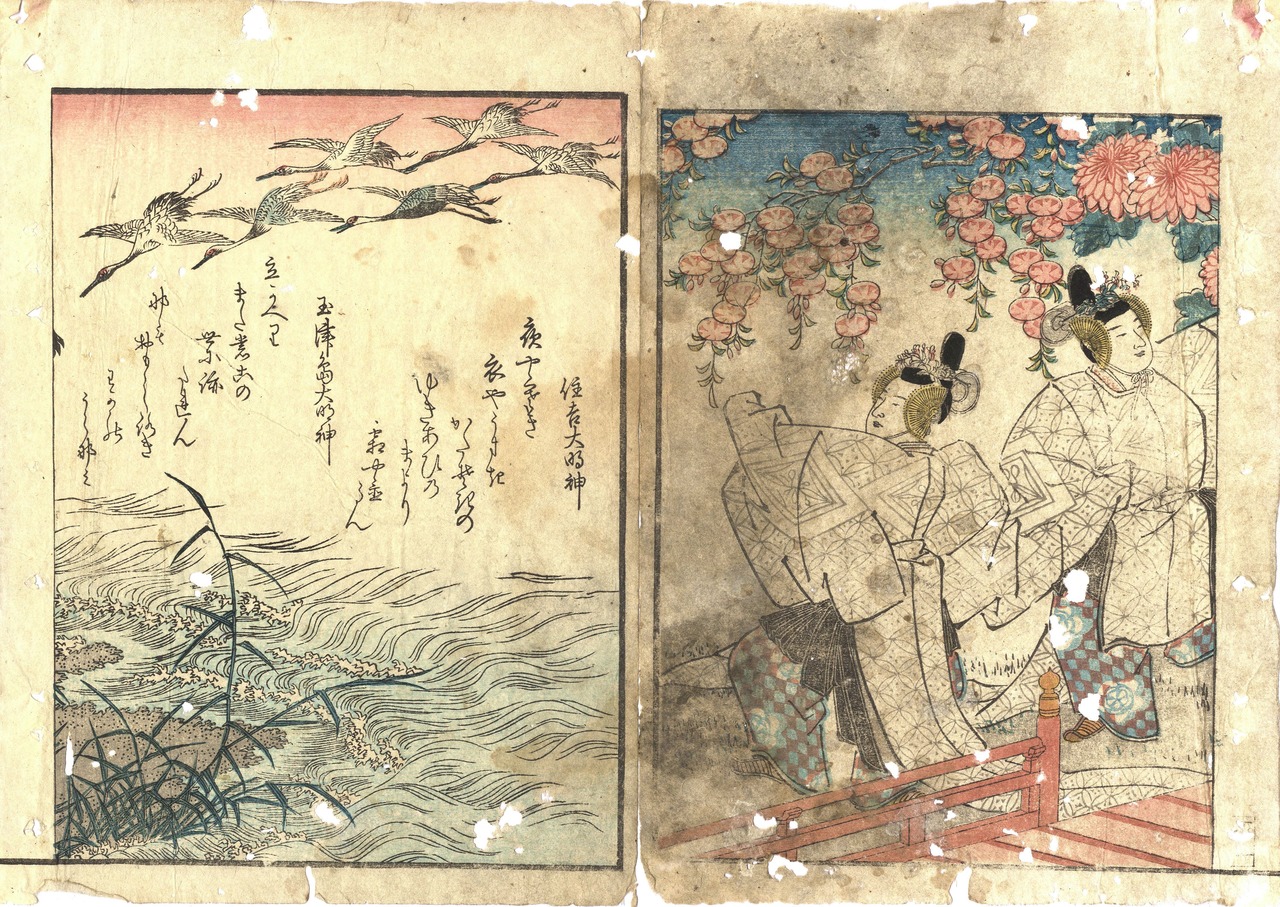 住吉大明神
夜や寒き
衣やうすき
かたそきの
ゆきあひの
まより
霜や置
らん
玉津島大明神
立かへり
またもこの
世に跡
たれん
なも
おもしろき
わかの
うらなミ